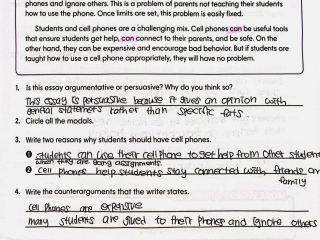 phones and ignore others. This is a problem of parents not teaching their students
how to use the phone. Once limits are set, this problem is easily fixed.
Students and cell phones are a challenging mix. Cell phones can be useful tools
that ensure students get help, can connect to their parents, and be safe. On the
other hand, they can be expensive and encourage bad behavior. But if students are
taught how to use a cell phone appropriately, they will have no problem.
1. Is this essay argumentative or persuasive? Why do you think so?
This essay is persuasive because it gives an opinion with
general statements rather than specific facts.
2. Circle all the modals.
3. Write two reasons why students should have cell phones.
1 students can use their cell phone to get help from other students
when they are doing assignments.
2 cell phones help students stay connected with friends and
family
4. Write the counterarguments that the writer states.
cell phones are expensive
many students are glued to their phones and ignore others